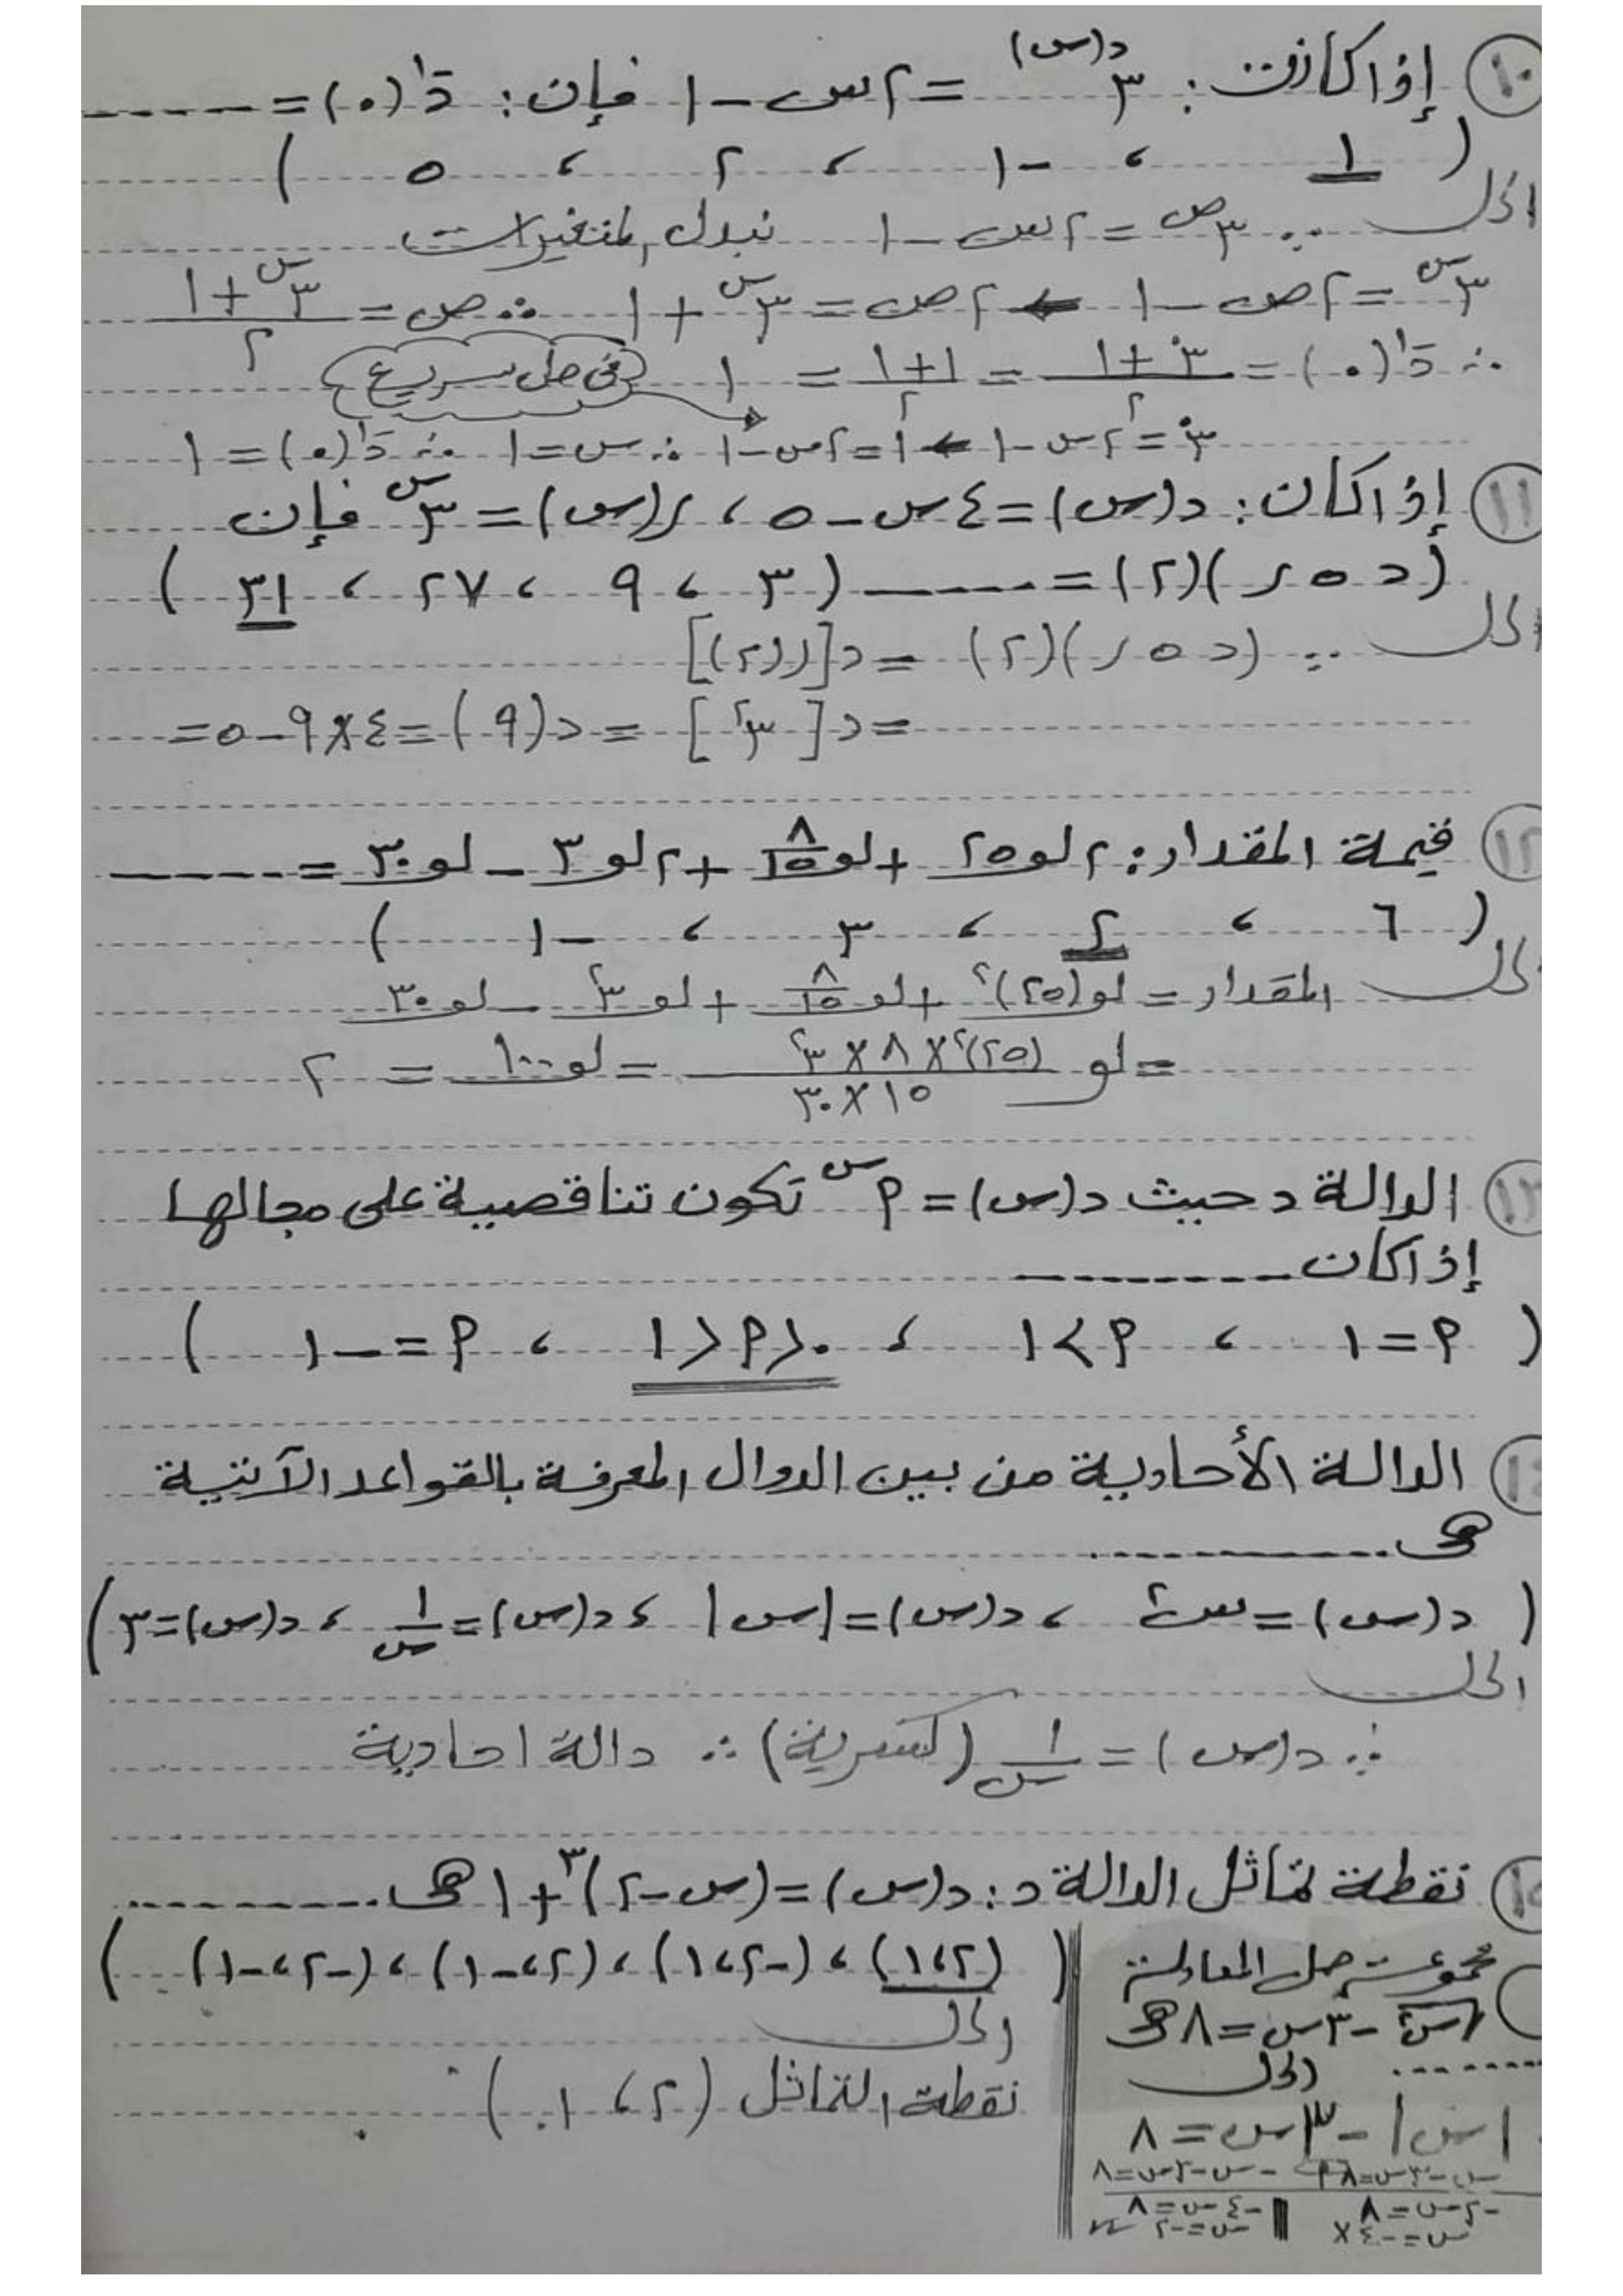 ١٠ إذا كانت: ٣^د(س) = ٢س - ١ فإن: د⁻¹(٠) = ------
( ١ ، -١ ، ٢ ، ٥ )
الحل ∵ ٣^ص = ٢س - ١ نبدل المتغيرات
٣^س = ٢ص - ١ ← ٢ص = ٣^س + ١ ∴ ص = (٣^س + ١)/٢
∴ د⁻¹(٠) = (٣^٠ + ١)/٢ = (١ + ١)/٢ = ١ في حل سريع
٣^٠ = ٢س - ١ ← ١ = ٢س - ١ ∴ س = ١ ∴ د⁻¹(٠) = ١
١١ إذا كان: د(س) = ٤س - ٥ ، ر(س) = ٣^س فإن
(د ∘ ر)(٢) = ------ ( ٣ ، ٩ ، ٢٧ ، ٣١ )
الحل ∵ (د ∘ ر)(٢) = د[ر(٢)]
= د[٣^٢] = د(٩) = ٤ × ٩ - ٥ =
١٢ قيمة المقدار: ٢ لو ٢٥ + لو ٨/١٥ + ٢ لو ٣ - لو ٣٠ = ------
( ٦ ، ٢ ، ٣ ، -١ )
الحل المقدار = لو (٢٥)^٢ + لو ٨/١٥ + لو ٣^٢ - لو ٣٠
= لو ((٢٥)^٢ × ٨ × ٣^٢)/(١٥ × ٣٠) = لو ١٠٠ = ٢
١٣ الدالة د حيث د(س) = م^س تكون تناقصية على مجالها
إذا كان ------
( م = ١ ، م > ١ ، ٠ < م < ١ ، م = -١ )
١٤ الدالة الأحادية من بين الدوال المعرفة بالقواعد الآتية
هى ------
( د(س) = س^٢ ، د(س) = |س| ، د(س) = ١/س ، د(س) = ٣ )
الحل
∵ د(س) = ١/س (كسرية) ∴ دالة احادية
١٥ نقطة تماثل الدالة د: د(س) = (س - ٢)^٣ + ١ هى ------
( (٢،١) ، (-٢،١) ، (٢،-١) ، (-٢،-١) )
الحل
نقطة التماثل (٢ ، ١)
مجموعة حل المعادلة
√س^٢ - ٣س = ٨ هى
------ الحل
|س| - ٣س = ٨
س - ٣س = ٨ | -س - ٣س = ٨
-٢س = ٨ | -٤س = ٨
س = -٤ × | س = -٢